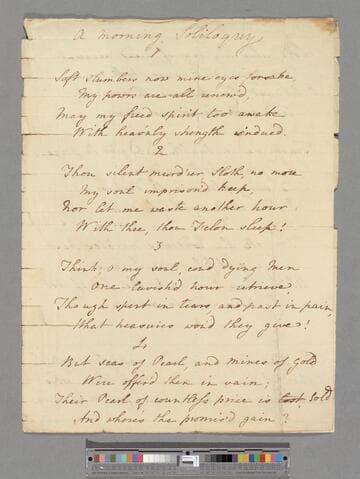 A morning Soliloquy
1
Soft slumbers now mine eyes forsake,
My pow'rs are all renew'd,
May my freed spirit too awake
With heav'nly strength endued.
2
Thou silent murd'rer Sloth, no more
My soul imprison'd keep,
Nor let me waste another hour
With thee, thou Felon sleep!
3
Think, o my soul, cou'd dying Men
One lavish'd hour retrieve,
Though spent in tears, and past in pain,
What treasures wou'd they give!
4
But seas of Pearl, and mines of Gold
Were offer'd then in vain;
Their Pearl of countless price is lost, Sold
And where's the promis'd gain?